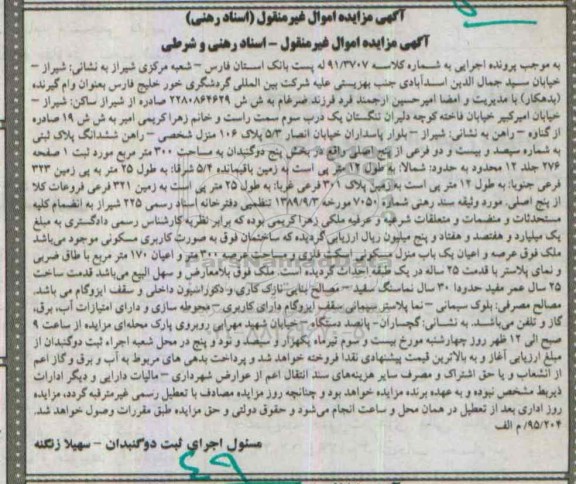 آگهی مزایده اموال غیرمنقول (اسناد رهنی)
آگهی مزایده اموال غیرمنقول - اسناد رهنی و شرطی
به موجب پرونده اجرایی به شماره کلاسه ۹۱/۳۷۰۷ له پست بانک استان فارس - شعبه مرکزی شیراز به نشانی: شیراز -
خیابان سید جمال الدین اسدآبادی جنب بهزیستی علیه شرکت بین المللی گردشگری خور خلیج فارس بعنوان وام گیرنده
(بدهکار) با مدیریت و امضا امیرحسین ارجمند فرد فرزند ضرغام به ش ش ۲۲۸۰۸۶۴۶۲۹ صادره از شیراز ساکن: شیراز -
خیابان امیرکبیر خیابان فاخته کوچه دلیران تنگستان یک درب سوم سمت راست و خانم زهرا کریمی امیر به ش ش ۱۹ صادره
از گناوه - راهن به نشانی: شیراز - بلوار پاسداران خیابان انصار ۵/۳ پلاک ۱۰۶ منزل شخصی - راهن ششدانگ پلاک ثبتی
به شماره سیصد و بیست و دو فرعی از پنج اصلی واقع در بخش پنج دوگنبدان به مساحت ۳۰۰ متر مربع مورد ثبت ۱ صفحه
۲۷۶ جلد ۱۲ محدود به حدود: شمالا: به طول ۱۲ متر پی است به زمین باقیمانده ۵/۴ شرقا: به طول ۲۵ متر به پی زمین ۳۲۳
فرعی جنوبا: به طول ۱۲ متر پی است به زمین پلاک ۳۰۱ فرعی غربا: به طول ۲۵ متر پی است به زمین ۳۲۱ فرعی فروعات کلا
از پنج اصلی. مورد وثیقه سند رهنی شماره ۷۰۵۰ مورخه ۱۳۸۹/۹/۳ تنظیمی دفترخانه اسناد رسمی ۲۲۵ شیراز به انضمام کلیه
مستحدثات و منضمات و متعلقات شرعیه و عرفیه ملکی زهرا کریمی بوده که برابر نظریه کارشناس رسمی دادگستری به مبلغ
یک میلیارد و هفتصد و هفتاد و پنج میلیون ریال ارزیابی گردیده که ساختمان فوق به صورت کاربری مسکونی موجود می‌باشد
ملک فوق عرصه و اعیان یک باب منزل مسکونی اسکلت فلزی و مساحت عرصه ۳۰۰ متر و اعیان ۱۷۰ متر مربع با طاق ضربی
و نمای پلاستر با قدمت ۲۵ ساله در یک طبقه احداث گردیده است. ملک فوق بلامعارض و سهل البیع می‌باشد قدمت ساخت
۲۵ سال عمر مفید حدودا ۳۰ سال نماسنگ سفید - مصالح بنایی نازک کاری و دکوراسیون داخلی و سقف ایزوگام می باشد.
مصالح مصرفی: بلوک سیمانی - نما پلاستر سیمانی سقف ایزوگام دارای کاربری - محوطه سازی و دارای امتیازات آب، برق،
گاز و تلفن می‌باشد. به نشانی: گچساران- پانصد دستگاه - خیابان شهید مهرابی روبروی پارک محله‌ای مزایده از ساعت ۹
صبح الی ۱۲ ظهر روز چهارشنبه مورخ بیست و سوم تیرماه یکهزار و سیصد و نود و پنج در محل شعبه اجراء ثبت دوگنبدان از
مبلغ ارزیابی آغاز و به بالاترین قیمت پیشنهادی نقدا فروخته خواهد شد و پرداخت بدهی های مربوط به آب و برق و گاز اعم
از انشعاب و یا حق اشتراک و مصرف سایر هزینه‌های سند انتقال اعم از عوارض شهرداری - مالیات دارایی و دیگر ادارات
ذیربط مشخص نبوده و به عهده برنده مزایده خواهد بود و چنانچه روز مزایده مصادف با تعطیل رسمی غیرمترقبه گردد، مزایده
روز اداری بعد از تعطیل در همان محل و ساعت انجام می‌شود و حقوق دولتی و حق مزایده طبق مقررات وصول خواهد شد.
۹۵/۲۰۴/ م الف
مسئول اجرای ثبت دوگنبدان - سهیلا زنگنه